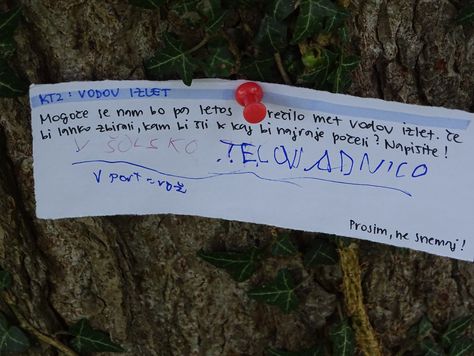 KT2: VODOV IZLET
Mogoče se nam bo pa letos rečilo met vodov izlet. Če
bi lahko zbirali, kam bi šli k kaj bi najraje počeli? Napišite!
V ŠOLSKO TELOVADNICO
V
Prosim, ne snemaj!